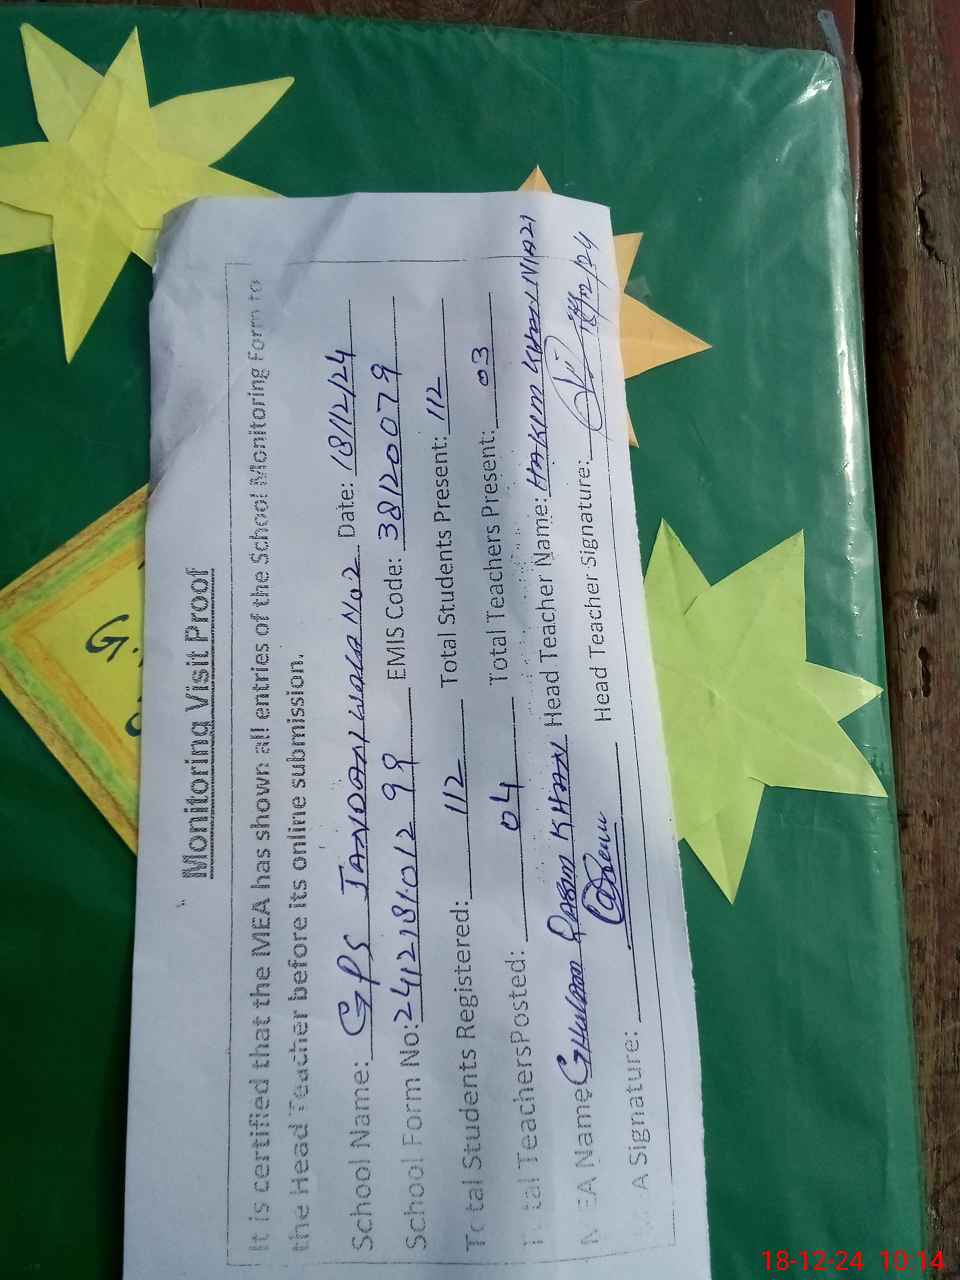 Monitoring Visit Proof
It is certified that the MEA has shown all entries of the School Monitoring Form to
the Head Teacher before its online submission.
School Name: GPS JANDANWALA No2 Date: 18/12/24
School Form No: 241218101299 EMIS Code: 38120079
Total Students Registered: 112 Total Students Present: 112
Total TeachersPosted: 04 Total Teachers Present: 03
MEA Name GHULAM RASUL KHAN Head Teacher Name: HAKIM KHAN NIAZI
MEA Signature: Head Teacher Signature: 18/12/24
G.
18-12-24 10:14